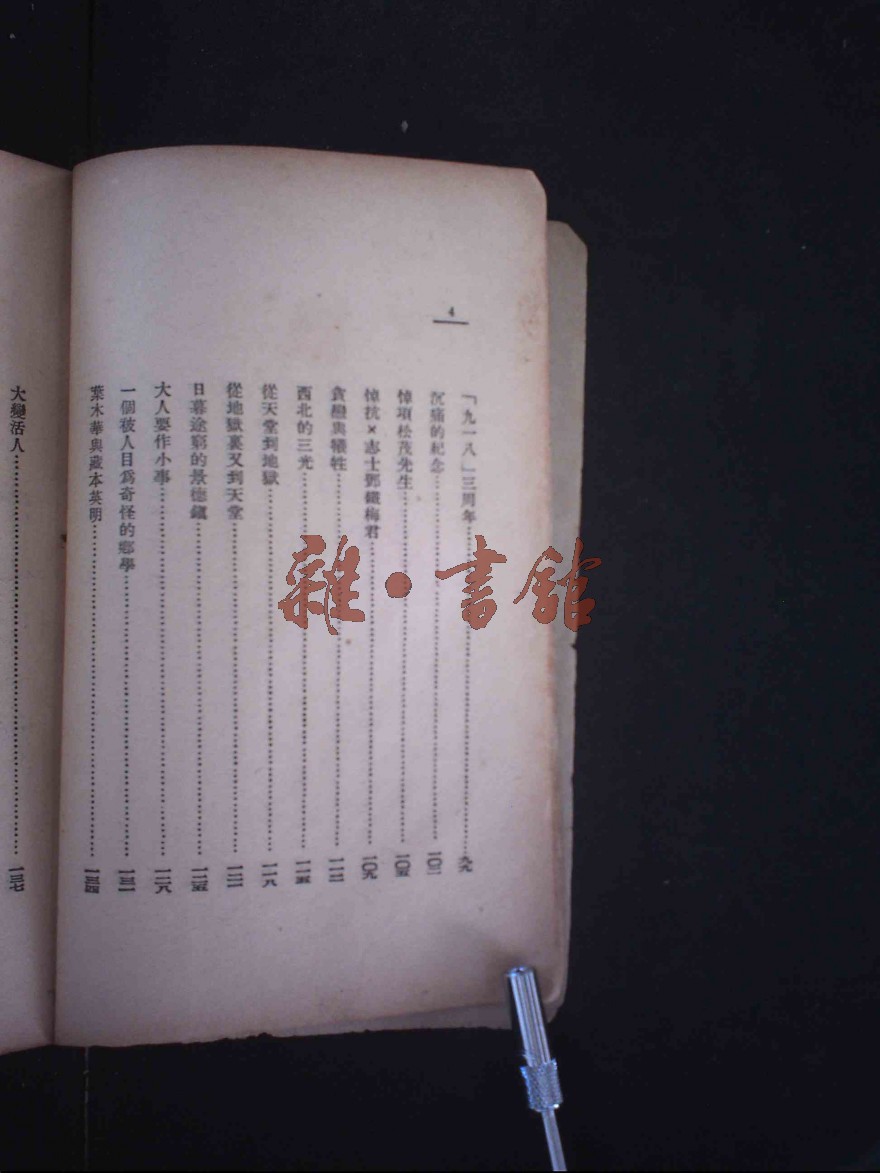 4
「九一八」三周年……九九
沉痛的紀念……一〇二
悼項松茂先生……一〇五
悼抗×志士鄧鐵梅君……一〇九
貪戀與犧牲……一一二
西北的三光……一一五
從天堂到地獄……一一八
從地獄裏又到天堂……一二二
日暮途窮的景德鎮……一二五
大人要作小事……一二八
一個被人目爲奇怪的鄉學……一三一
葉木華與藏本英明……一三四
大變活人……一三七
雜·書館